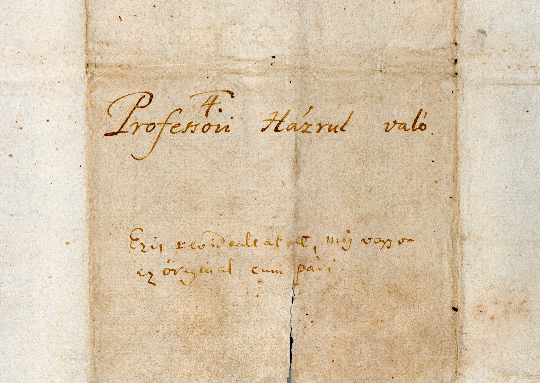 4.
Professori Házrul való.
Ezis recondealtatott, mig vagyon
az original cum pari